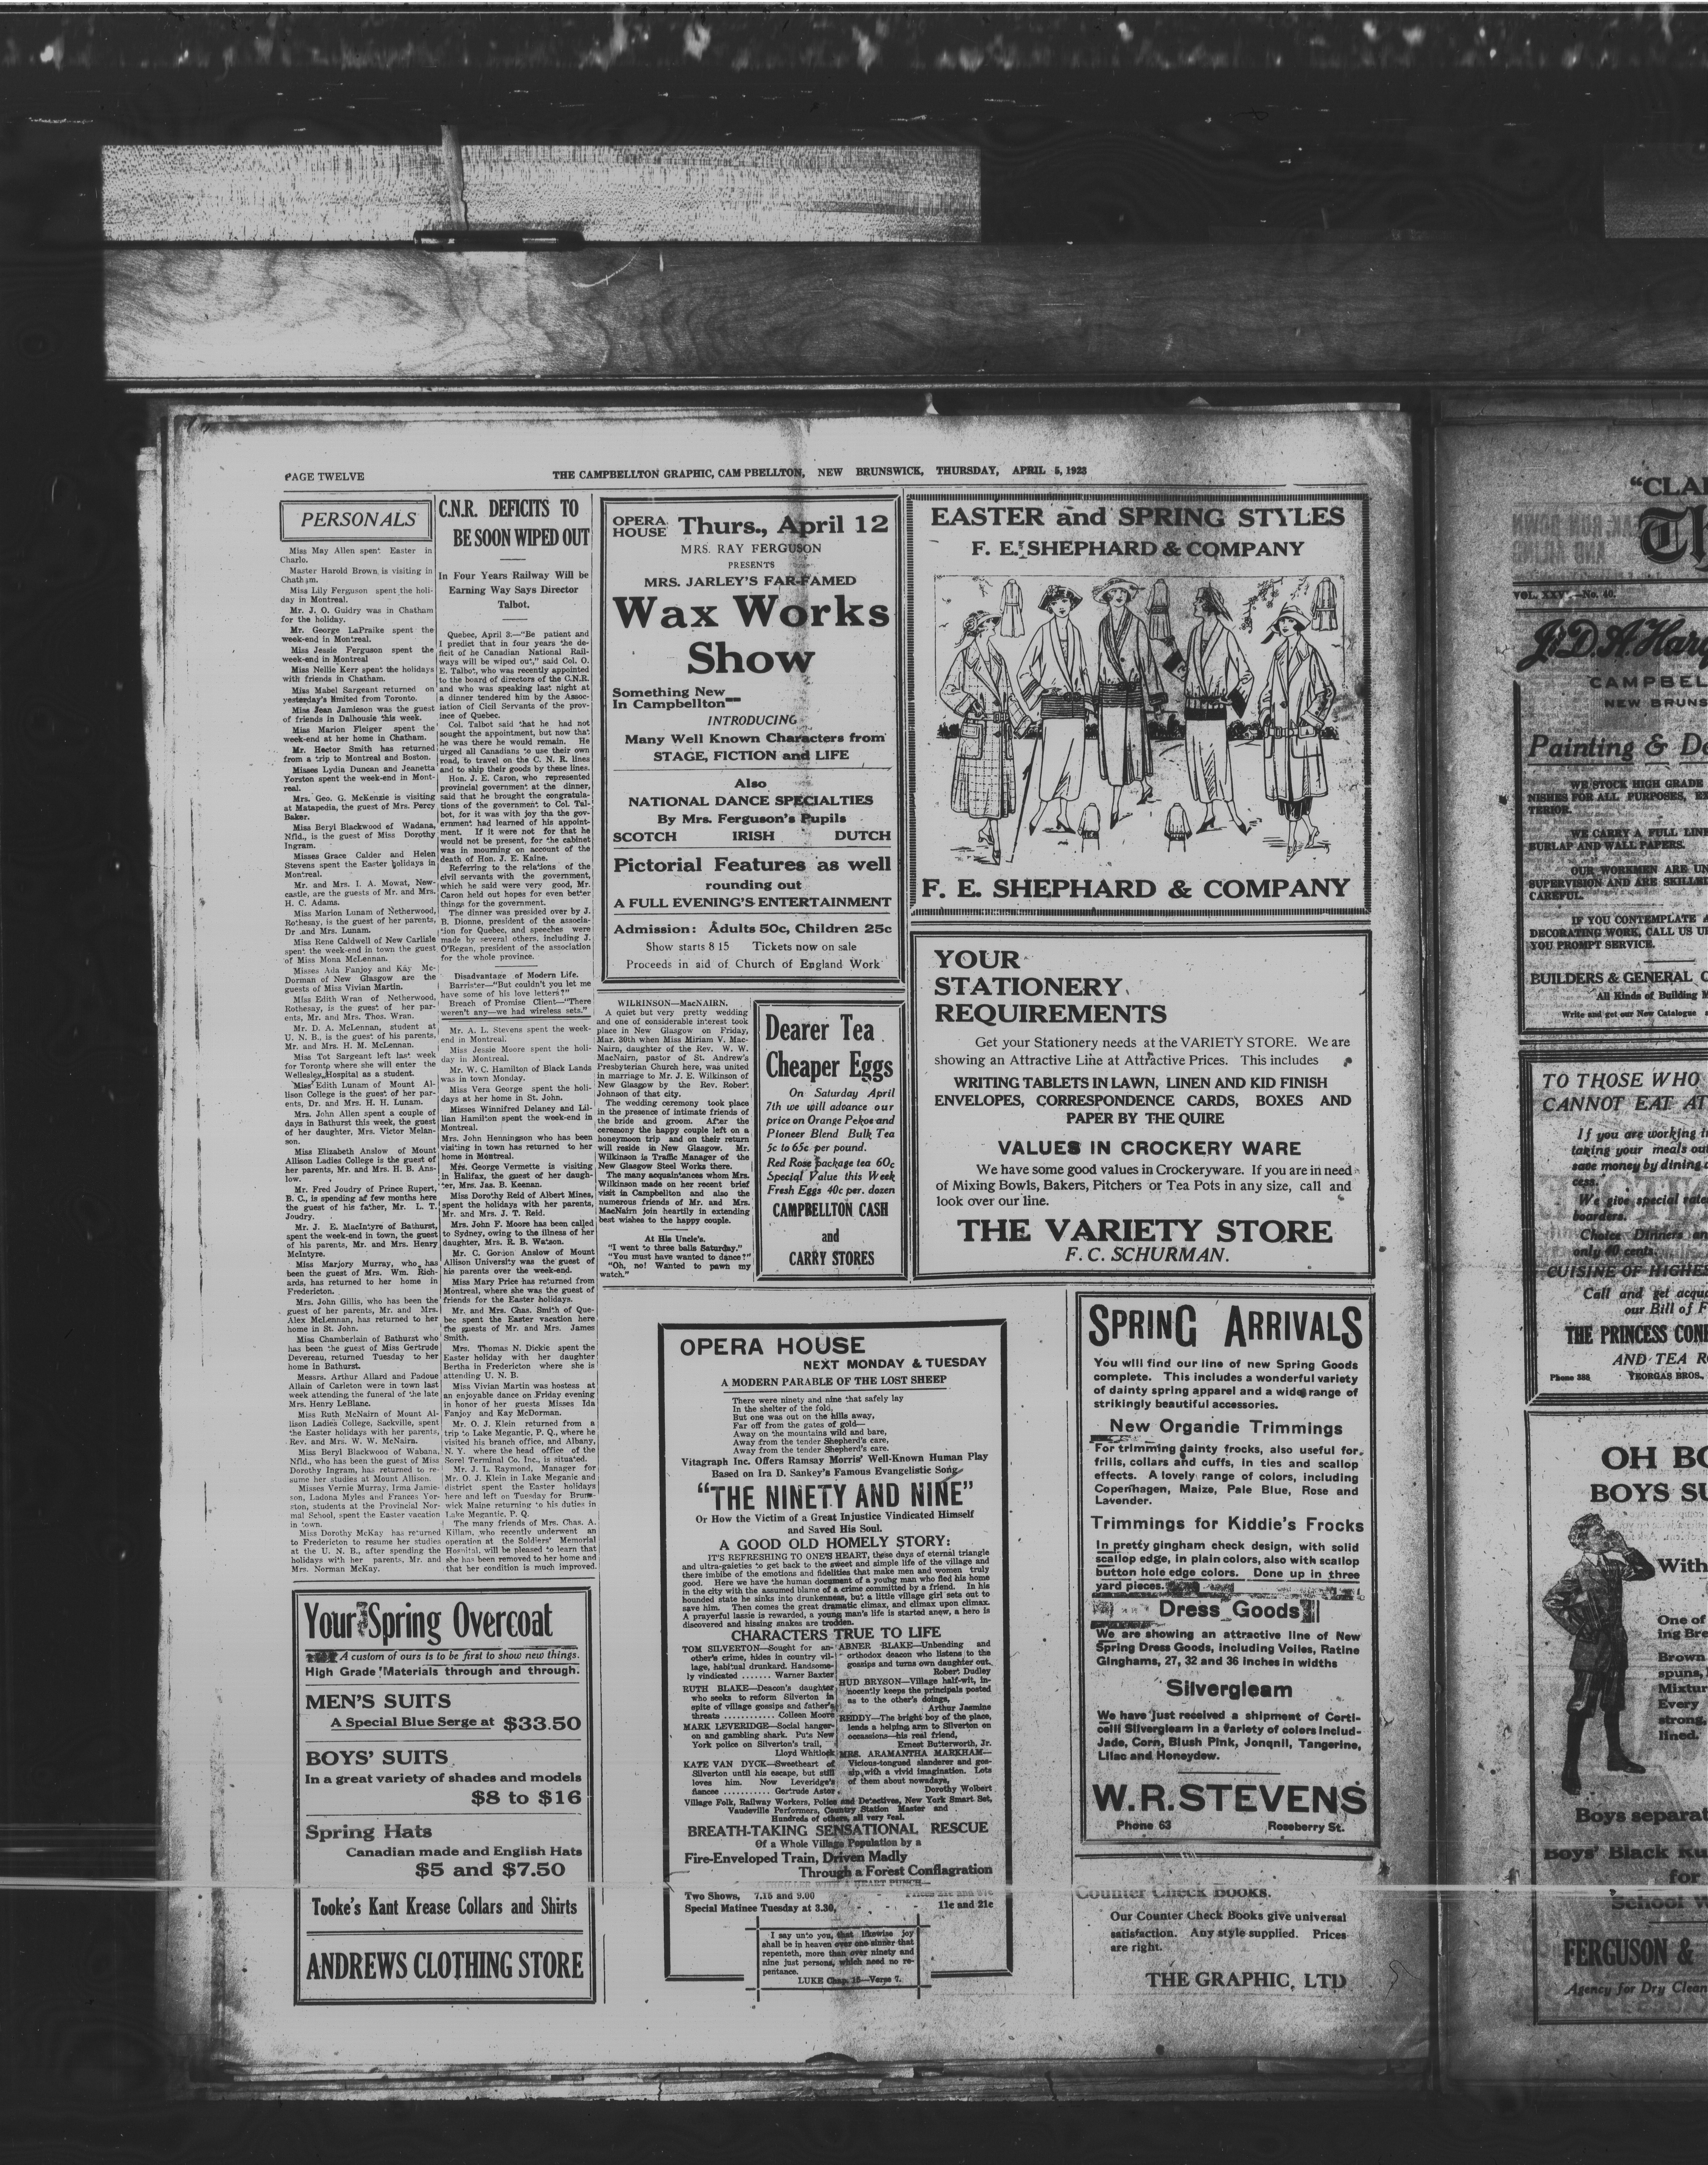 PAGE TWELVE
THE CAMPBELLTON GRAPHIC, CAMPBELLTON, NEW BRUNSWICK, THURSDAY, APRIL 5, 1923
PERSONALS
Miss May Allen spent Easter in
Charlo.
Master Harold Brown is visiting in
Chatham.
Miss Lily Ferguson spent the holi-
day in Montreal.
Mr. J. O. Guidry was in Chatham
for the holiday.
Mr. George LaPraike spent the
week-end in Montreal.
Miss Jessie Ferguson spent the
week-end in Montreal
Miss Nellie Kerr spent the holidays
with friends in Chatham.
Miss Mabel Sargeant returned on
yesterday's limited from Toronto.
Miss Jean Jamieson was the guest
of friends in Dalhousie this week.
Miss Marion Fleiger spent the
week-end at her home in Chatham.
Mr. Hector Smith has returned
from a trip to Montreal and Boston.
Misses Lydia Duncan and Jeanetta
Yorston spent the week-end in Mont-
real.
Mrs. Geo. G. McKenzie is visiting
at Matapedia, the guest of Mrs. Percy
Baker.
Miss Beryl Blackwood of Wadana,
Nfld., is the guest of Miss Dorothy
Ingram.
Misses Grace Calder and Helen
Stevens spent the Easter holidays in
Montreal.
Mr. and Mrs. I. A. Mowat, New-
castle, are the guests of Mr. and Mrs.
H. C. Adams.
Miss Marion Lunam of Netherwood,
Rothesay, is the guest of her parents,
Dr and Mrs. Lunam.
Miss Rene Caldwell of New Carlisle
spent the week-end in town the guest
of Miss Mona McLennan.
Misses Ada Fanjoy and Kay Mc-
Dorman of New Glasgow are the
guests of Miss Vivian Martin.
Miss Edith Wran of Netherwood,
Rothesay, is the guest of her par-
ents, Mr. and Mrs. Thos. Wran.
Mr. D. A. McLennan, student at
U. N. B., is the guest of his parents,
Mr. and Mrs. H. M. McLennan.
Miss Tot Sargeant left last week
for Toronto where she will enter the
Wellesley Hospital as a student.
Miss Edith Lunam of Mount Al-
lison College is the guest of her par-
ents, Dr. and Mrs. H. H. Lunam.
Mrs. John Allen spent a couple of
days in Bathurst this week, the guest
of her daughter, Mrs. Victor Melan-
son.
Miss Elizabeth Anslow of Mount
Allison Ladies College is the guest of
her parents, Mr. and Mrs. H. B. Ans-
low.
Mr. Fred Joudry of Prince Rupert,
B. C., is spending a few months here
the guest of his father, Mr. L. T.
Joudry.
Mr. J. E. MacIntyre of Bathurst,
spent the week-end in town, the guest
of his parents, Mr. and Mrs. Henry
McIntyre.
Miss Marjory Murray, who has
been the guest of Mrs. Wm. Rich-
ards, has returned to her home in
Fredericton.
Mrs. John Gillis, who has been the
guest of her parents, Mr. and Mrs.
Alex McLennan, has returned to her
home in St. John.
Miss Chamberlain of Bathurst who
has been the guest of Miss Gertrude
Devereau, returned Tuesday to her
home in Bathurst.
Messrs. Arthur Allard and Padoue
Allain of Carleton were in town last
week attending the funeral of the late
Mrs. Henry LeBlanc.
Miss Ruth McNairn of Mount Al-
lison Ladies College, Sackville, spent
the Easter holidays with her parents,
Rev. and Mrs. W. W. McNairn.
Miss Beryl Blackwood of Wabana,
Nfld., who has been the guest of Miss
Dorothy Ingram, has returned to re-
sume her studies at Mount Allison.
Misses Vernie Murray, Irma Jamie-
son, Ladona Myles and Frances Yor-
ston, students at the Provincial Nor-
mal School, spent the Easter vacation
in town.
Miss Dorothy McKay has returned
to Fredericton to resume her studies
at the U. N. B., after spending the
holidays with her parents, Mr. and
Mrs. Norman McKay.
C.N.R. DEFICITS TO
BE SOON WIPED OUT
In Four Years Railway Will be
Earning Way Says Director
Talbot.
Quebec, April 3.—"Be patient and
I predict that in four years the de-
ficit of he Canadian National Rail-
ways will be wiped out," said Col. O.
E. Talbot, who was recently appointed
to the board of directors of the C.N.R.
and who was speaking last night at
a dinner tendered him by the Assoc-
iation of Cicil Servants of the prov-
ince of Quebec.
Col. Talbot said that he had not
sought the appointment, but now that
he was there he would remain. He
urged all Canadians to use their own
road, to travel on the C. N. R. lines
and to ship their goods by these lines.
Hon. J. E. Caron, who represented
provincial government at the dinner,
said that he brought the congratula-
tions of the government to Col. Tal-
bot, for it was with joy tha the gov-
ernment had learned of his appoint-
ment. If it were not for that he
would not be present, for the cabinet
was in mourning on account of the
death of Hon. J. E. Kaine.
Referring to the relations of the
civil servants with the government,
which he said were very good, Mr.
Caron held out hopes for even better
things for the government.
The dinner was presided over by J.
B. Dionne, president of the associa-
tion for Quebec, and speeches were
made by several others, including J.
O'Regan, president of the association
for the whole province.
Disadvantage of Modern Life.
Barrister—"But couldn't you let me
have some of his love letters?"
Breach of Promise Client—"There
weren't any—we had wireless sets."
Mr. A. L. Stevens spent the week-
end in Montreal.
Miss Jessie Moore spent the holi-
day in Montreal.
Mr. W. C. Hamilton of Black Lands
was in town Monday.
Miss Vera George spent the holi-
days at her home in St. John.
Misses Winnifred Delaney and Lil-
lian Hamilton spent the week-end in
Montreal.
Mrs. John Henningson who has been
visiting in town has returned to her
home in Montreal.
Mrs. George Vermette is visiting
in Halifax, the guest of her daugh-
ter, Mrs. Jas. B. Keenan.
Miss Dorothy Reid of Albert Mines,
spent the holidays with her parents,
Mr. and Mrs. J. T. Reid.
Mrs. John F. Moore has been called
to Sydney, owing to the illness of her
daughter, Mrs. R. B. Watson.
Mr. C. Gordon Anslow of Mount
Allison University was the guest of
his parents over the week-end.
Miss Mary Price has returned from
Montreal, where she was the guest of
friends for the Easter holidays.
Mr. and Mrs. Chas. Smith of Que-
bec spent the Easter vacation here
the guests of Mr. and Mrs. James
Smith.
Mrs. Thomas N. Dickie spent the
Easter holiday with her daughter
Bertha in Fredericton where she is
attending U. N. B.
Miss Vivian Martin was hostess at
an enjoyable dance on Friday evening
in honor of her guests Misses Ida
Fanjoy and Kay McDorman.
Mr. O. J. Klein returned from a
trip to Lake Megantic, P. Q., where he
visited his branch office, and Albany,
N. Y. where the head office of the
Sorel Terminal Co. Inc., is situated.
Mr. J. L. Raymond, Manager for
Mr. O. J. Klein in Lake Meganic and
district spent the Easter holidays
here and left on Tuesday for Bruns-
wick Maine returning to his duties in
Lake Megantic, P. Q.
The many friends of Mrs. Chas. A.
Killam, who recently underwent an
operation at the Soldiers' Memorial
Hospital, will be pleased to learn that
she has been removed to her home and
that her condition is much improved.
Your Spring Overcoat
A custom of ours is to be first to show new things.
High Grade Materials through and through.
MEN'S SUITS
A Special Blue Serge at $33.50
BOYS' SUITS
In a great variety of shades and models
$8 to $16
Spring Hats
Canadian made and English Hats
$5 and $7.50
Tooke's Kant Krease Collars and Shirts
ANDREWS CLOTHING STORE
OPERA HOUSE Thurs., April 12
MRS. RAY FERGUSON
PRESENTS
MRS. JARLEY'S FAR-FAMED
Wax Works
Show
Something New
In Campbellton
INTRODUCING
Many Well Known Characters from
STAGE, FICTION and LIFE
Also
NATIONAL DANCE SPECIALTIES
By Mrs. Ferguson's Pupils
SCOTCH IRISH DUTCH
Pictorial Features as well
rounding out
A FULL EVENING'S ENTERTAINMENT
Admission: Adults 50c, Children 25c
Show starts 8 15 Tickets now on sale
Proceeds in aid of Church of England Work
WILKINSON—MacNAIRN.
A quiet but very pretty wedding
and one of considerable interest took
place in New Glasgow on Friday,
Mar. 30th when Miss Miriam V. Mac-
Nairn, daughter of the Rev. W. W.
MacNairn, pastor of St. Andrew's
Presbyterian Church here, was united
in marriage to Mr. J. E. Wilkinson of
New Glasgow by the Rev. Robert
Johnson of that city.
The wedding ceremony took place
in the presence of intimate friends of
the bride and groom. After the
ceremony the happy couple left on a
honeymoon trip and on their return
will reside in New Glasgow. Mr.
Wilkinson is Traffic Manager of the
New Glasgow Steel Works there.
The many acquaintances whom Mrs.
Wilkinson made on her recent brief
visit in Campbellton and also the
numerous friends of Mr. and Mrs.
MacNairn join heartily in extending
best wishes to the happy couple.
At His Uncle's.
"I went to three balls Saturday."
"You must have wanted to dance?"
"Oh, no! Wanted to pawn my
watch."
Dearer Tea
Cheaper Eggs
On Saturday April
7th we will advance our
price on Orange Pekoe and
Pioneer Blend Bulk Tea
5c to 65c per pound.
Red Rose package tea 60c
Special Value this Week
Fresh Eggs 40c per. dozen
CAMPBELLTON CASH
and
CARRY STORES
EASTER and SPRING STYLES
F. E. SHEPHARD & COMPANY
F. E. SHEPHARD & COMPANY
YOUR
STATIONERY
REQUIREMENTS
Get your Stationery needs at the VARIETY STORE. We are
showing an Attractive Line at Attractive Prices. This includes
WRITING TABLETS IN LAWN, LINEN AND KID FINISH
ENVELOPES, CORRESPONDENCE CARDS, BOXES AND
PAPER BY THE QUIRE
VALUES IN CROCKERY WARE
We have some good values in Crockeryware. If you are in need
of Mixing Bowls, Bakers, Pitchers or Tea Pots in any size, call and
look over our line.
THE VARIETY STORE
F. C. SCHURMAN.
OPERA HOUSE
NEXT MONDAY & TUESDAY
A MODERN PARABLE OF THE LOST SHEEP
There were ninety and nine that safely lay
In the shelter of the fold,
But one was out on the hills away,
Far off from the gates of gold—
Away on the mountains wild and bare,
Away from the tender Shepherd's care,
Away from the tender Shepherd's care.
Vitagraph Inc. Offers Ramsay Morris' Well-Known Human Play
Based on Ira D. Sankey's Famous Evangelistic Song
"THE NINETY AND NINE"
Or How the Victim of a Great Injustice Vindicated Himself
and Saved His Soul.
A GOOD OLD HOMELY STORY:
IT'S REFRESHING TO ONE'S HEART, these days of eternal triangle
and ultra-gaieties to get back to the sweet and simple life of the village and
there imbibe of the emotions and fidelities that make men and women truly
good. Here we have the human document of a young man who fled his home
in the city with the assumed blame of a crime committed by a friend. In his
hounded state he sinks into drunkenness, but a little village girl sets out to
save him. Then comes the great dramatic climax, and climax upon climax.
A prayerful lassie is rewarded, a young man's life is started anew, a hero is
discovered and hissing snakes are trodden.
CHARACTERS TRUE TO LIFE
TOM SILVERTON—Sought for an-
other's crime, hides in country vil-
lage, habitual drunkard. Handsome-
ly vindicated ....... Warner Baxter
RUTH BLAKE—Deacon's daughter
who seeks to reform Silverton in
spite of village gossips and father's
threats ............ Colleen Moore
MARK LEVERIDGE—Social hanger-
on and gambling shark. Puts New
York police on Silverton's trail,
Lloyd Whitlock
KATE VAN DYCK—Sweetheart of
Silverton until his escape, but still
loves him. Now Leveridge's
fiancee ........... Gertrude Astor
ABNER BLAKE—Unbending and
orthodox deacon who listens to the
gossips and turns own daughter out.
Robert Dudley
HUD BRYSON—Village half-wit, in-
nocently keeps the principals posted
as to the other's doings,
Arthur Jasmine
REDDY—The bright boy of the place,
lends a helping arm to Silverton on
occassions—his real friend,
Ernest Butterworth, Jr.
MRS. ARAMANTHA MARKHAM—
Vicious-tongued slanderer and gos-
sip, with a vivid imagination. Lots
of them about nowadays,
Dorothy Wolbert
Village Folk, Railway Workers, Police and Detectives, New York Smart Set,
Vaudeville Performers, Country Station Master and
Hundreds of others, all very real.
BREATH-TAKING SENSATIONAL RESCUE
Of a Whole Village Population by a
Fire-Enveloped Train, Driven Madly
Through a Forest Conflagration
Two Shows, 7.15 and 9.00
Special Matinee Tuesday at 3.30, 11c and 21c
I say unto you, that likewise joy
shall be in heaven over one sinner that
repenteth, more than over ninety and
nine just persons, which need no re-
pentance.
LUKE Chap. 15—Verse 7.
SPRING ARRIVALS
You will find our line of new Spring Goods
complete. This includes a wonderful variety
of dainty spring apparel and a wide range of
strikingly beautiful accessories.
New Organdie Trimmings
For trimming dainty frocks, also useful for
frills, collars and cuffs, in ties and scallop
effects. A lovely range of colors, including
Copenhagen, Maize, Pale Blue, Rose and
Lavender.
Trimmings for Kiddie's Frocks
In pretty gingham check design, with solid
scallop edge, in plain colors, also with scallop
button hole edge colors. Done up in three
yard pieces.
Dress Goods
We are showing an attractive line of New
Spring Dress Goods, including Voiles, Ratine
Ginghams, 27, 32 and 36 inches in widths
Silvergleam
We have just received a shipment of Corti-
celli Silvergleam in a variety of colors includ-
Jade, Corn, Blush Pink, Jonqnil, Tangerine,
Lilac and Honeydew.
W. R. STEVENS
Phone 63 Roseberry St.
Counter Check Books.
Our Counter Check Books give universal
satisfaction. Any style supplied. Prices
are right.
THE GRAPHIC, LTD
"CLA
VOL. XXV —No. 40.
J. D. A. Har
CAMPBEL
NEW BRUNS
Painting & De
WE STOCK HIGH GRADE
NISHES FOR ALL PURPOSES, EX
TERIOR.
WE CARRY A FULL LINE
BURLAP AND WALL PAPERS.
OUR WORKMEN ARE UN
SUPERVISION AND ARE SKILLE
CAREFUL.
IF YOU CONTEMPLATE A
DECORATING WORK, CALL US U
YOU PROMPT SERVICE.
BUILDERS & GENERAL C
All Kinds of Building M
Write and get our New Catalogue
TO THOSE WHO
CANNOT EAT AT
If you are working i
taking your meals ou
save money by dining
cess.
We give special rate
boarders.
Choice Dinners an
only 40 cents.
CUISINE OF HIGHES
Call and get acqua
our Bill of F
THE PRINCESS CON
AND TEA R
Phone 388 YEORGAS BROS.
OH BO
BOYS SU
With
One of
ing Bre
Brown
spuns,
Mixtur
Every
strong,
lined.
Boys separat
Boys' Black Ru
for
School W
FERGUSON &
Agency for Dry Clean